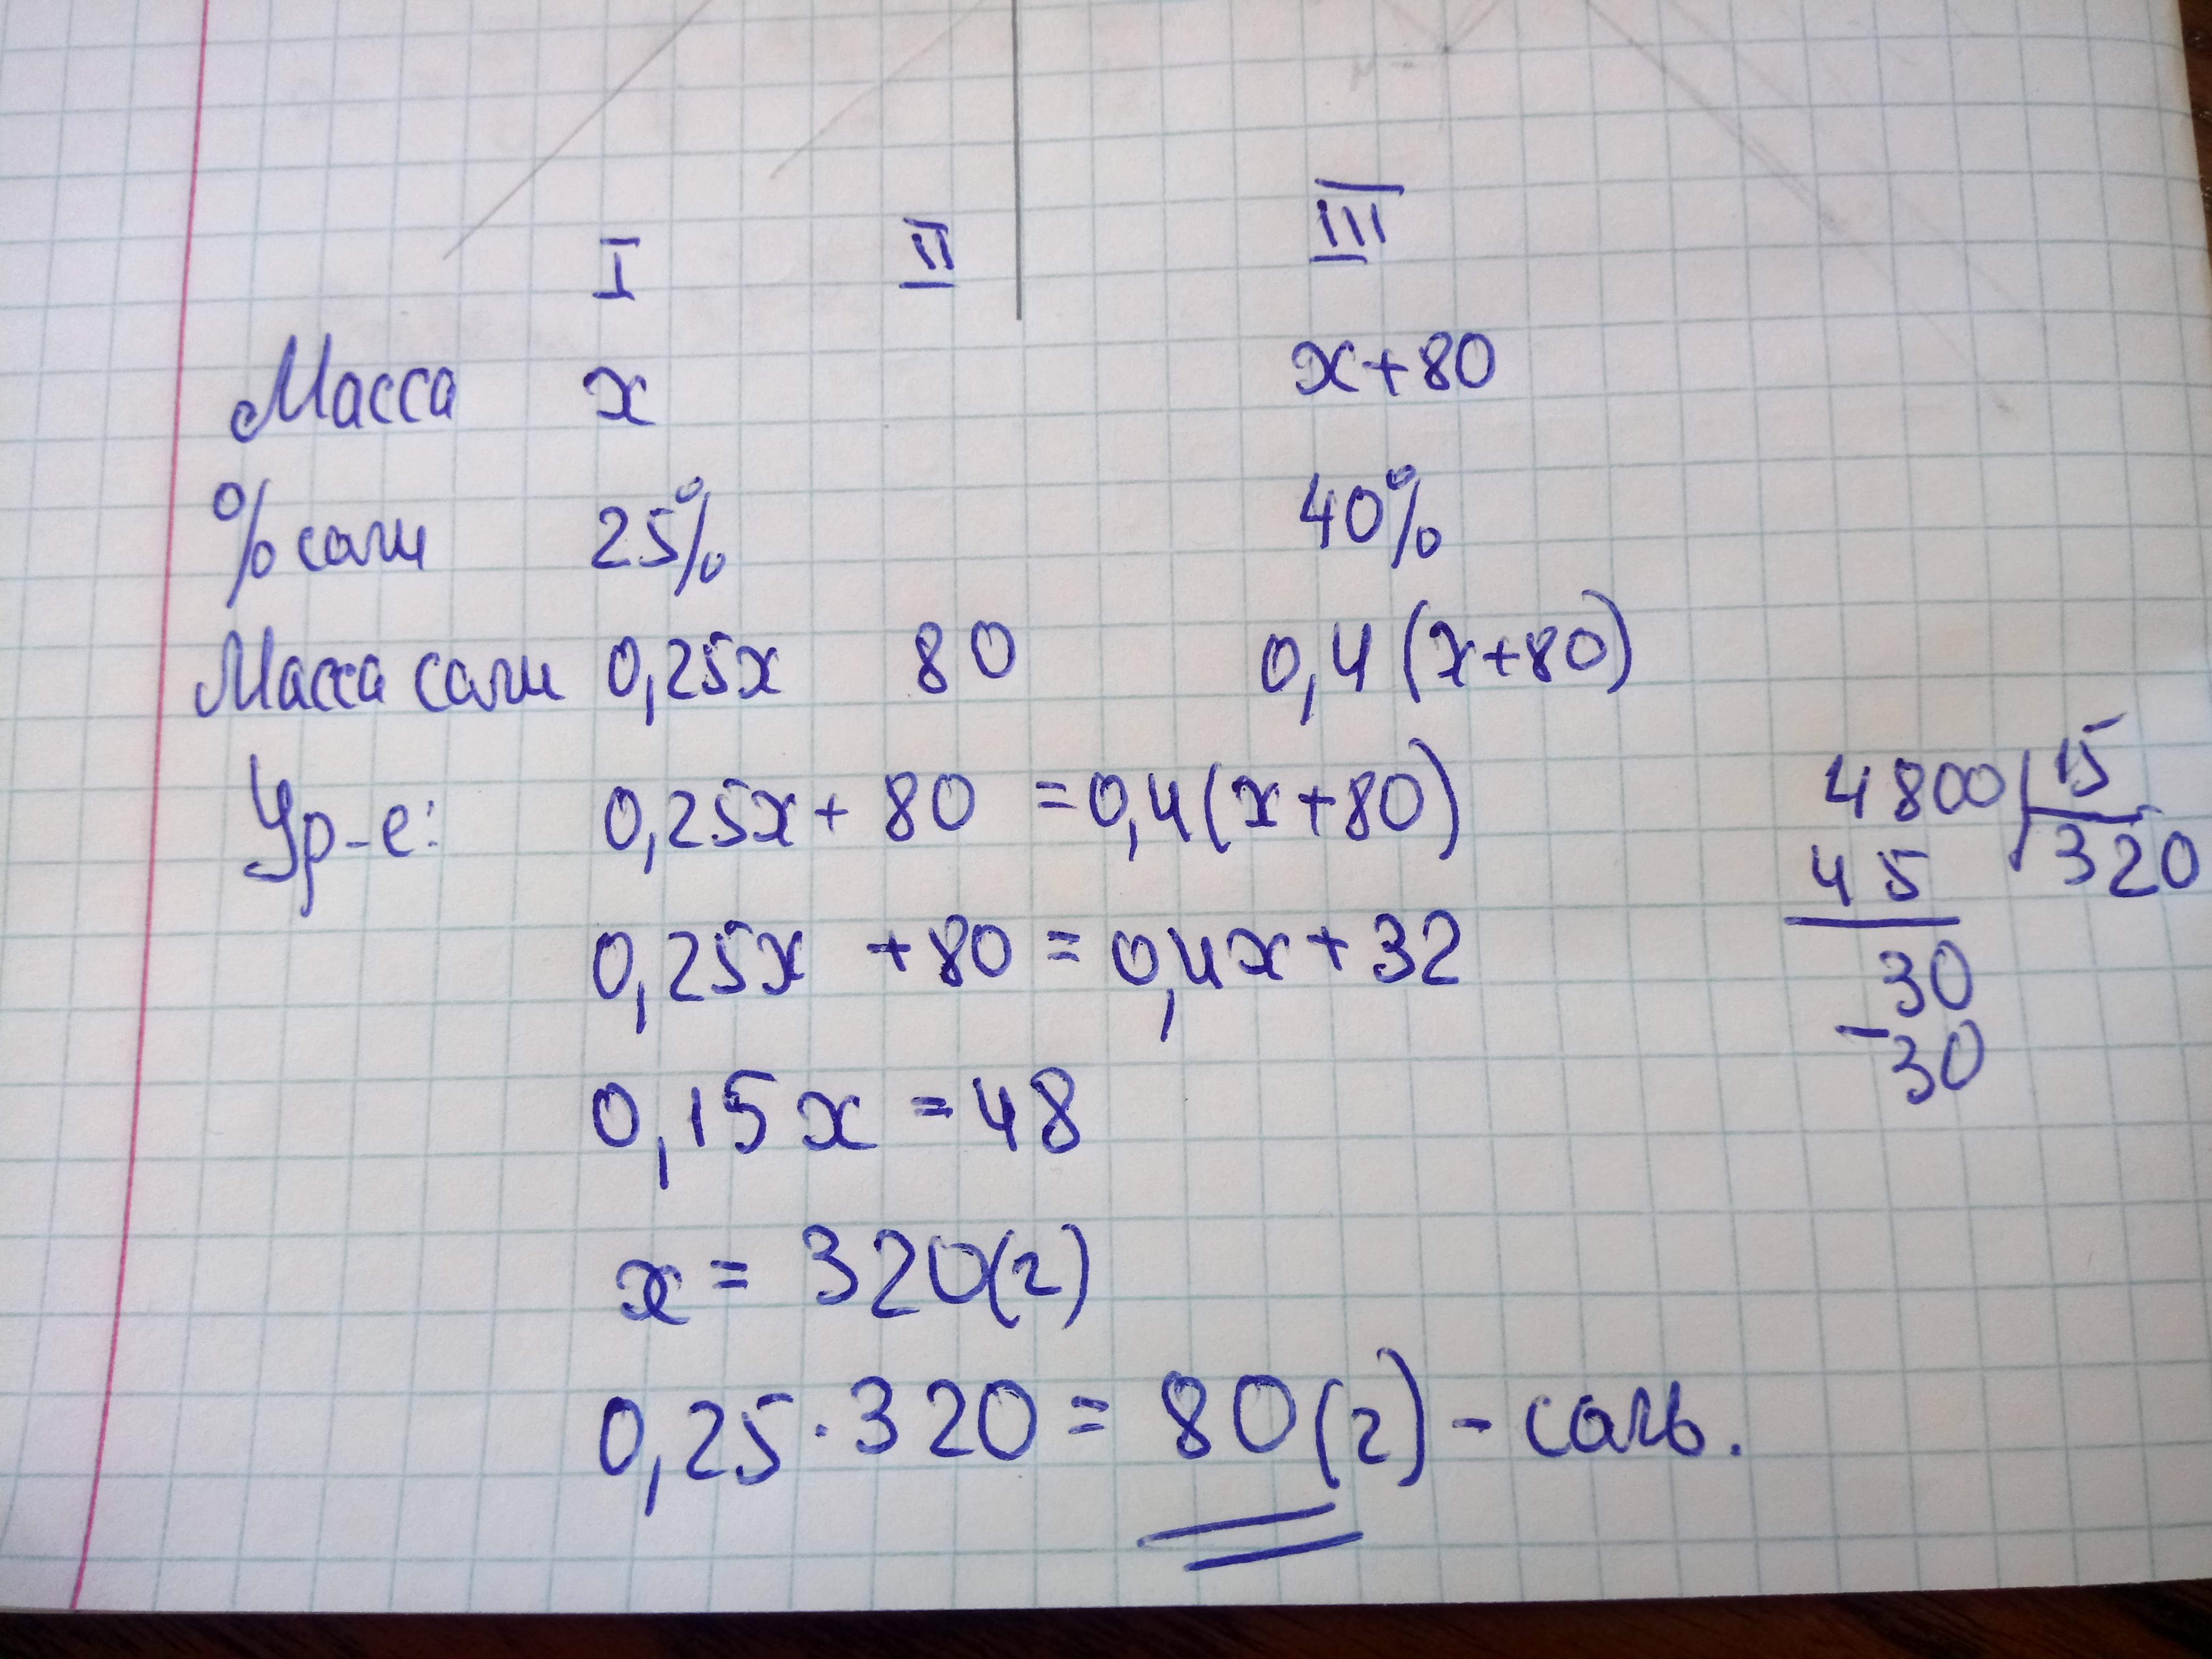 I II III
Масса x x+80
% соли 25% 40%
Масса соли 0,25x 80 0,4(x+80)
Ур-е: 0,25x + 80 = 0,4(x+80)
0,25x + 80 = 0,4x + 32
0,15x = 48
x = 320(г)
0,25·320 = 80(г) - соль.
4800 15
45 320
30
-30